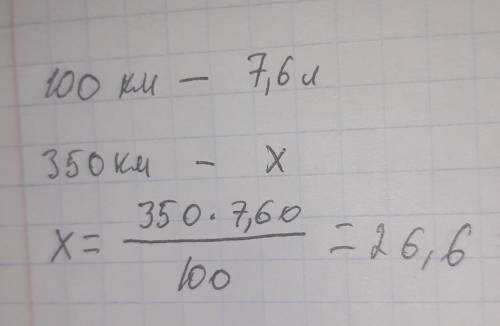 100 км - 7,6 л
350 км - х
х = 350 · 7,60 / 100 = 26,6